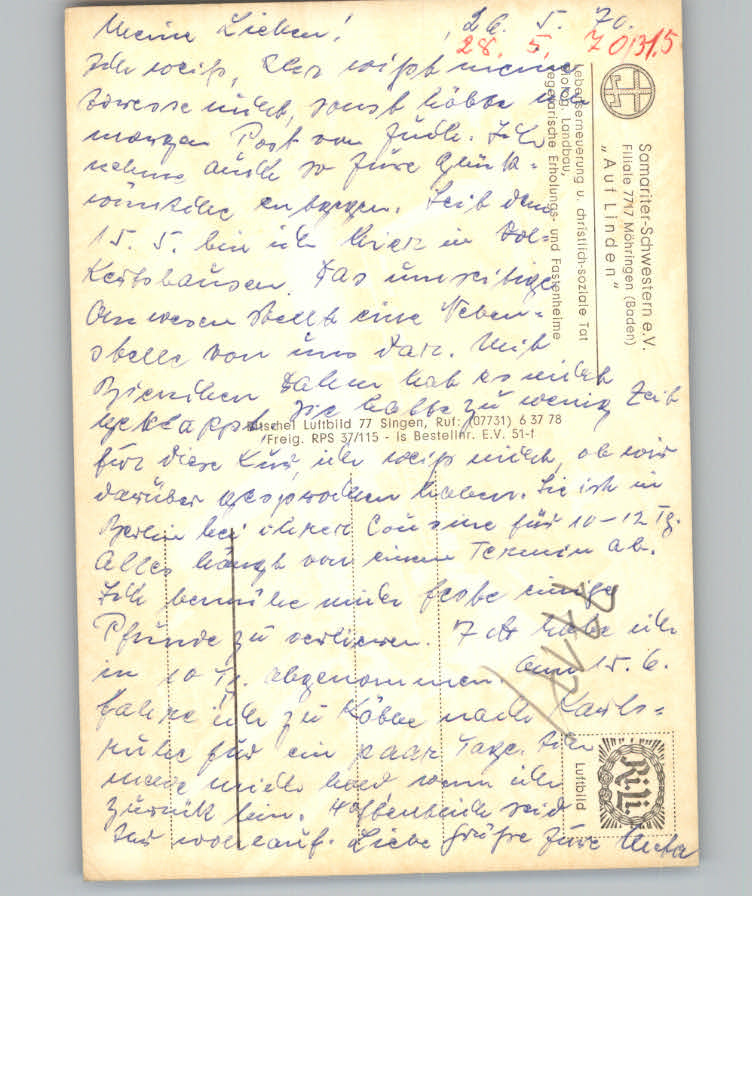 Meine Lieben! 26. 5. 70.
28. 5. 70/31.5
Ich weiß, Ihr wißt meine
Adresse nicht, sonst hätte ich
morgen Post von Euch. Ich
nehme auch so Eure Glück-
wünsche entgegen. Seit dem
15. 5. bin ich hier in
Das umseitige
Anwesen stellt eine Neben-
stelle von uns dar. Mit
Bienchen Dahm hat es nicht
geklappt, sie hatte zu wenig Zeit
für diese Kur, ich weiß nicht, ob wir
darüber gesprochen haben. Sie ist in
Berlin bei ihrer Cousine für 10-12 Tg.
Alles hängt von einem Termin ab.
Ich bemühe mich feste einige
Pfunde zu verlieren. 7 habe ich
in 10 Tg. abgenommen. Am 15. 6.
fahre ich zu nach Karls-
ruhe für ein paar Tage.
melde mich bald, wenn ich
zurück bin. Hoffentlich seid
Ihr wohlauf. Liebe Grüße Eure Meta
Samariter-Schwestern e.V.
Filiale 7717 Möhringen (Baden)
„Auf Linden"
Lebenserneuerung u. christlich-soziale Tat
biolog. Landbau,
vegetarische Erholungs- und Fastenheime
Luftbild 77 Singen, Ruf: (07731) 6 37 78
Freig. RPS 37/115 - Is Bestellnr. E.V. 51-f
Ri.Li.
Luftbild